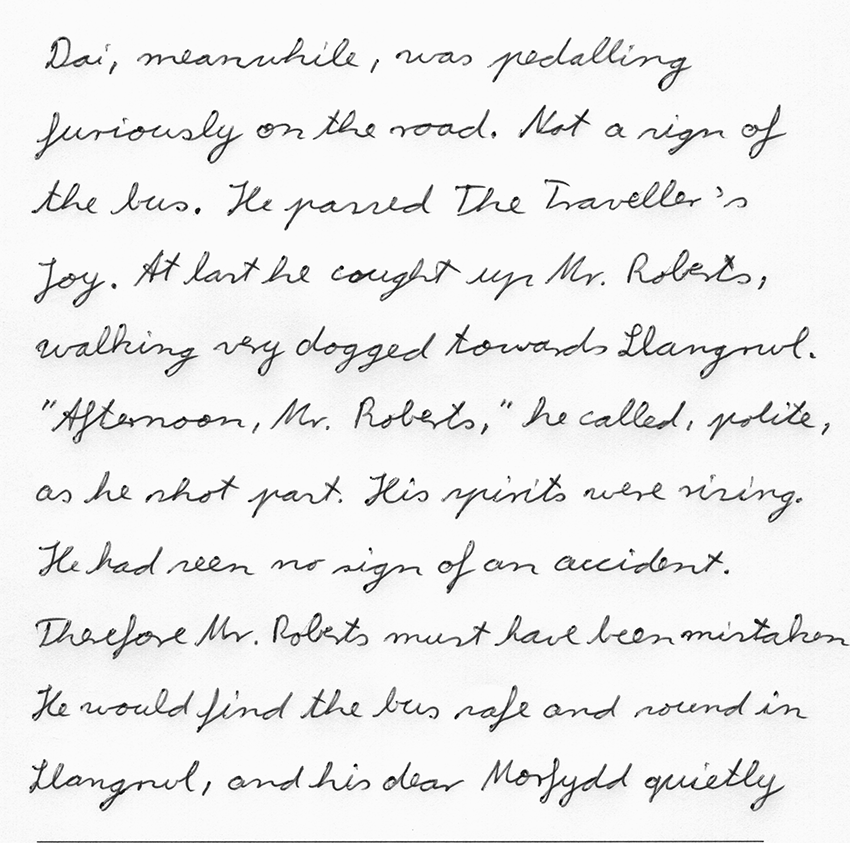 Dai, meanwhile, was pedalling
furiously on the road. Not a sign of
the bus. He passed The Traveller's
Joy. At last he caught up Mr. Roberts,
walking very dogged towards Llangrwl.
"Afternoon, Mr. Roberts," he called, polite,
as he shot past. His spirits were rising.
He had seen no sign of an accident.
Therefore Mr. Roberts must have been mistaken
He would find the bus safe and sound in
Llangrwl, and his dear Morfydd quietly